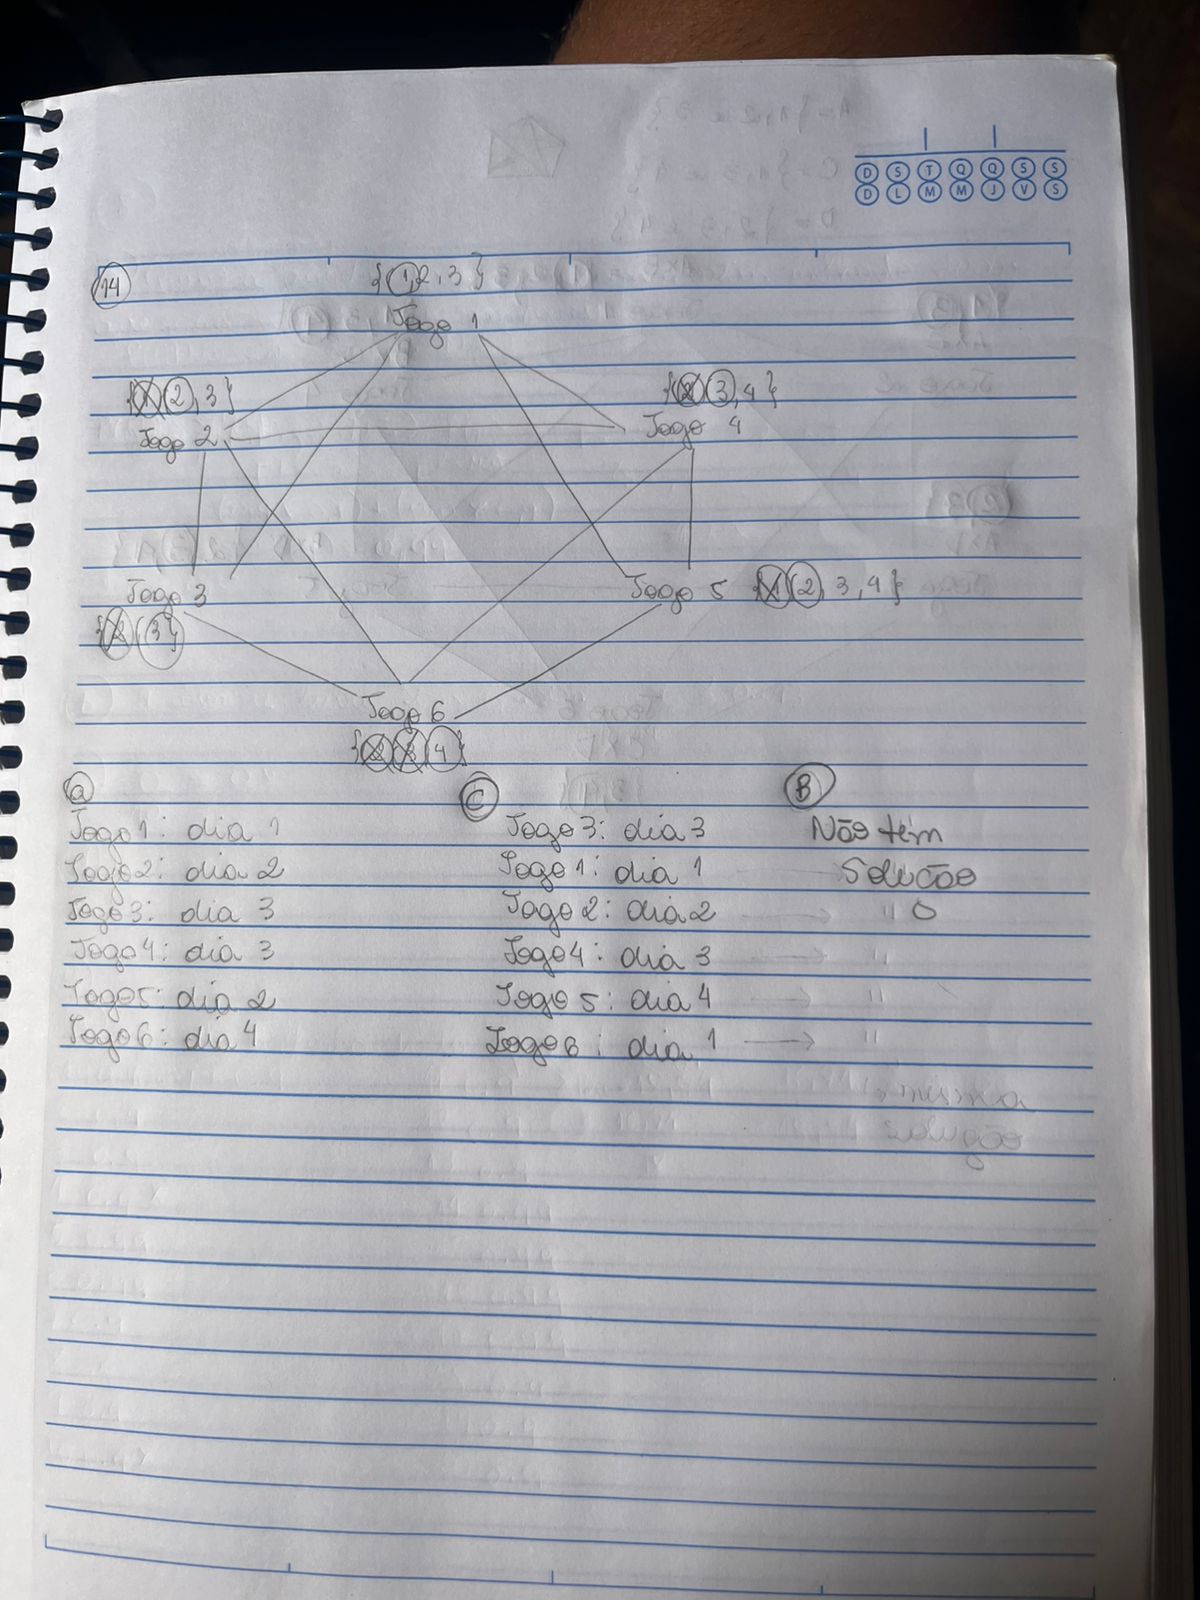 D S T Q Q S S
D L M M J V S
14
{1,2,3}
Jogo 1
{1,2,3}
Jogo 2
{2,3,4}
Jogo 4
Jogo 3
{2,3}
Jogo 5 {1,2,3,4}
Jogo 6
{2,3,4}
a
Jogo1: dia 1
Jogo2: dia 2
Jogo3: dia 3
Jogo4: dia 3
Jogo5: dia 2
Jogo6: dia 4
C
Jogo 3: dia 3
Jogo 1: dia 1
Jogo 2: dia 2
Jogo 4: dia 3
Jogo 5: dia 4
Jogo 6: dia 1
B
Não têm
Solução
→ "
→ "
→ "
→ "